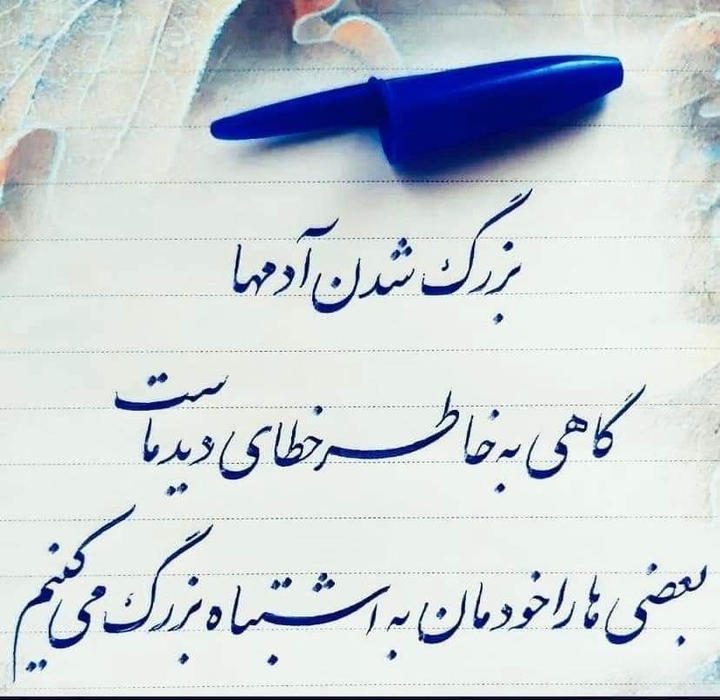 بزرگ شدن آدمها
گاهی به خاطر خطای دید ماست
بعضی ها را خودمان به اشتباه بزرگ می کنیم